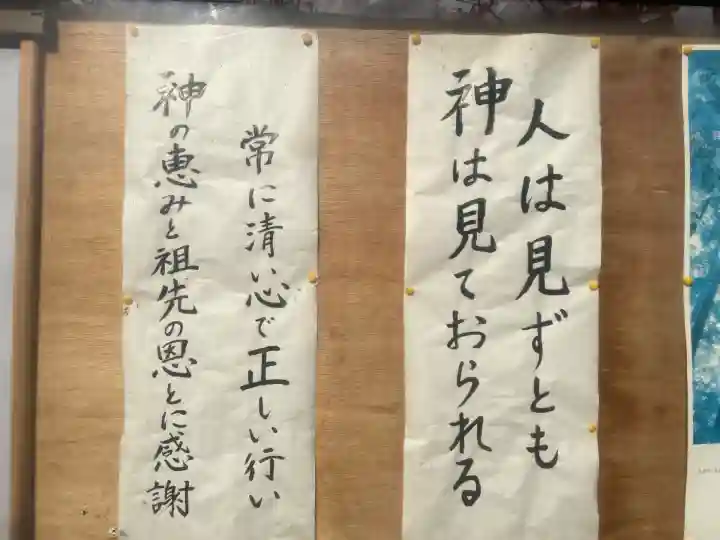 人は見ずとも
神は見ておられる
常に清い心で正しい行い
神の恵みと祖先の恩とに感謝